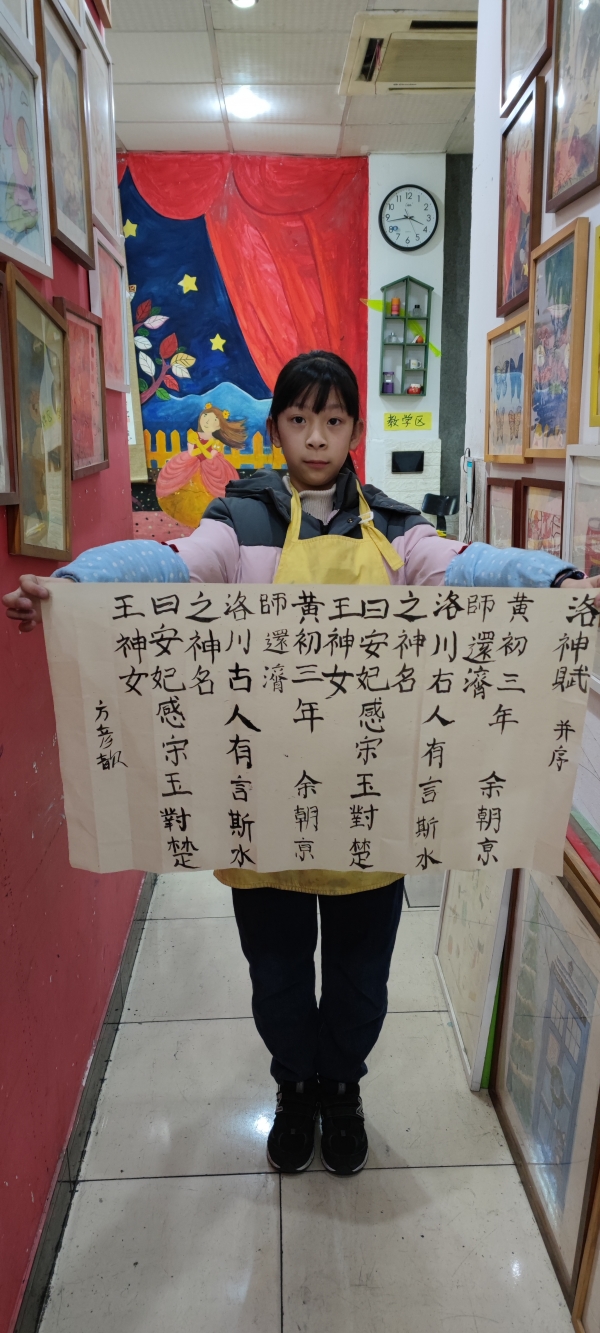 洛神賦 并序
黄初三年 余朝京
師還濟
洛川右人有言斯水
之神名
曰安妃感宋玉對楚
王神女
黄初三年 余朝京
師還濟
洛川古人有言斯水
之神名
曰安妃感宋玉對楚
王神女
方彦歆
教学区